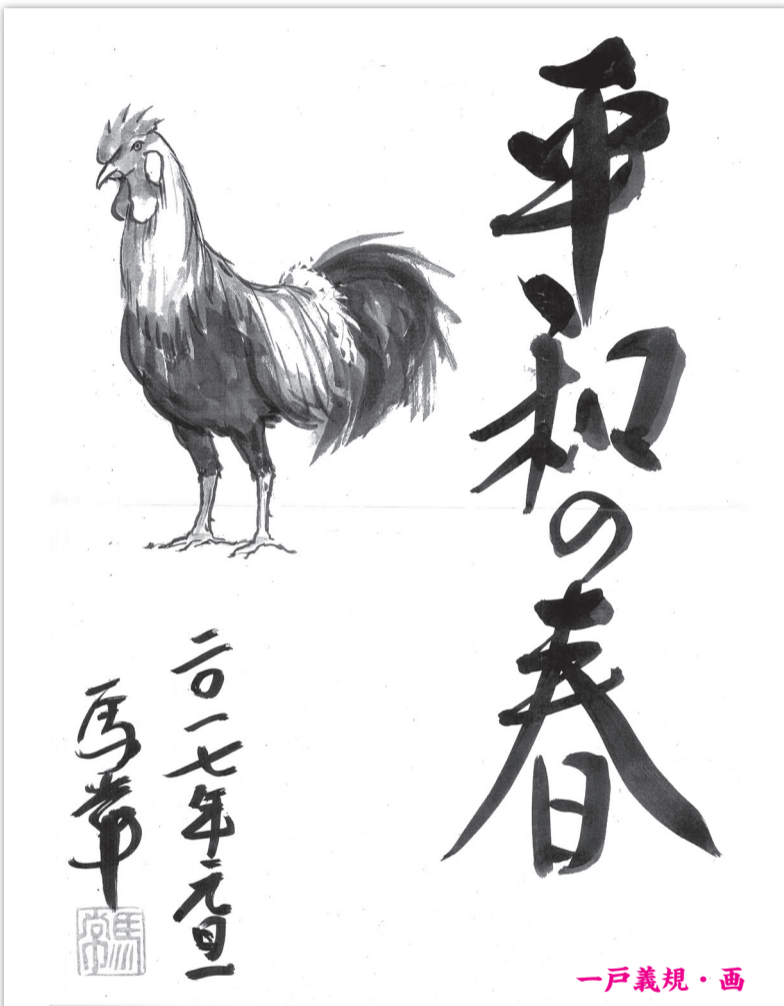 平和の春
二〇一七年元旦
馬常
馬常
一戸義規・画